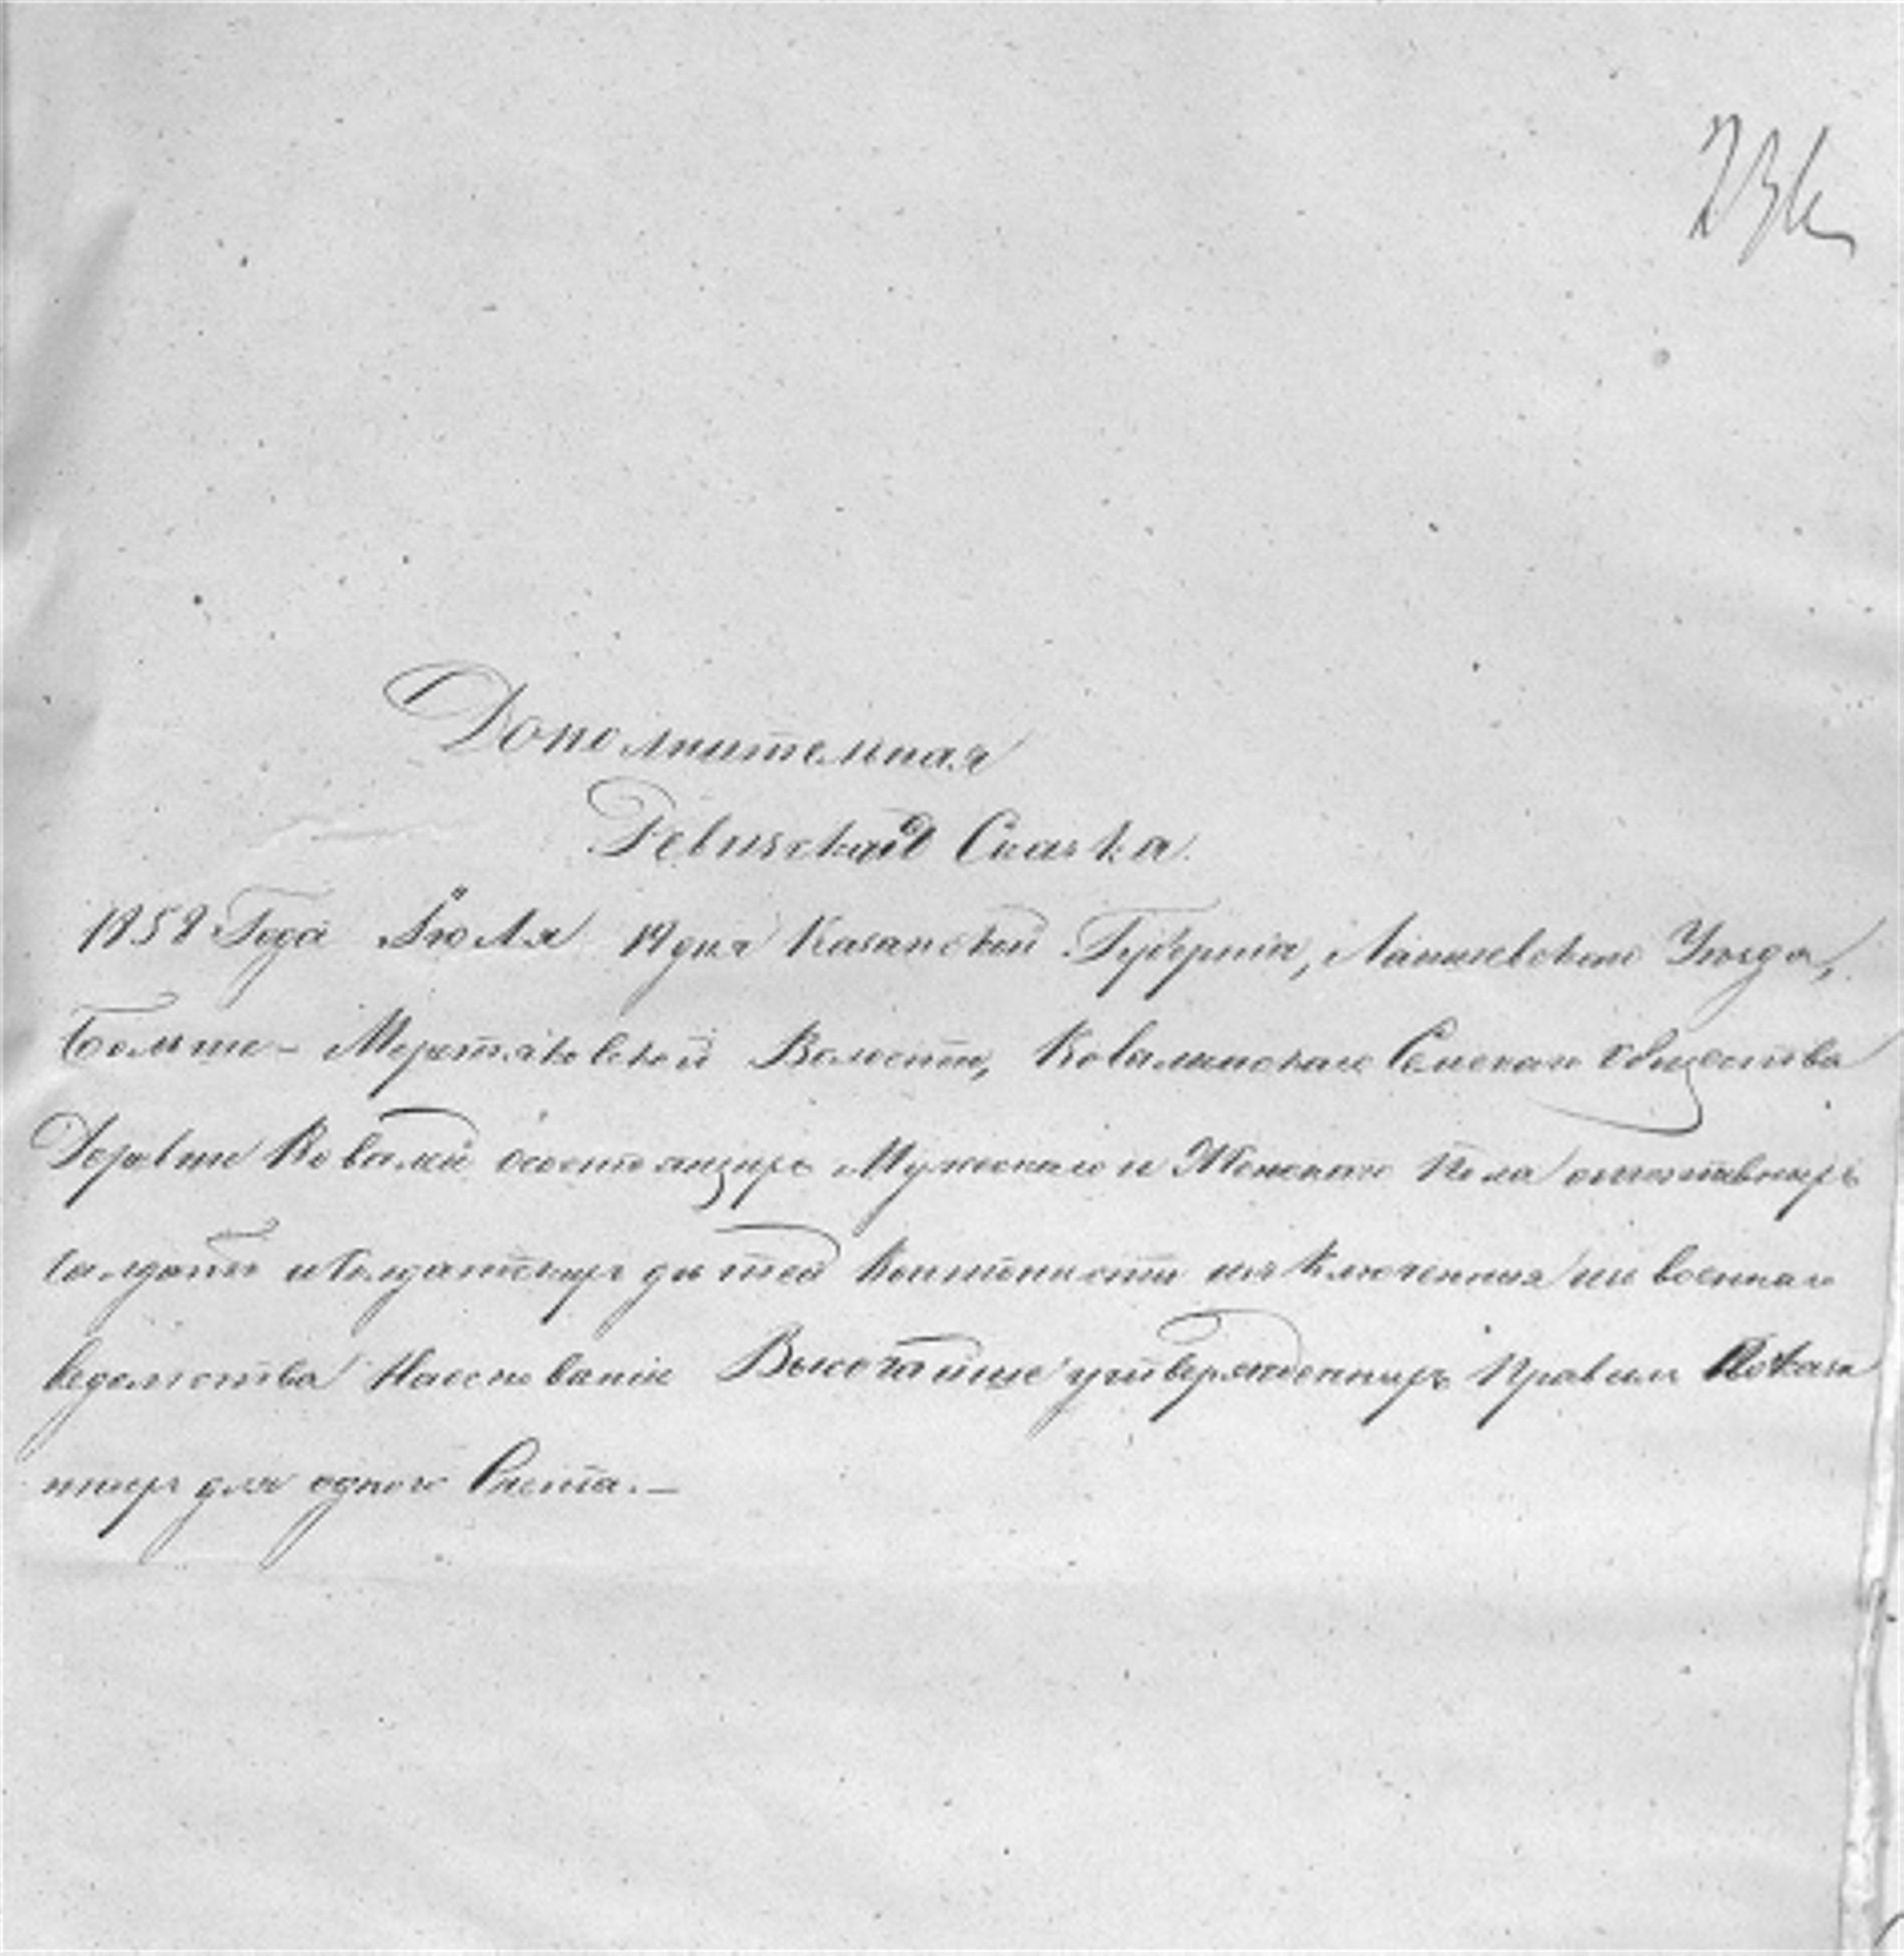 236
Дополнительная
Ревизская Сказка.
1858 Года Іюля 19 дня Казанской Губерніи, Лаишевскаго Уезда,
Больше-Меретяковской Волости, Ковалинскаго Сельскаго общества
Деревни Ковалей о состоящихъ Мужескаго и Женскаго Пола отставныхъ
Солдатъ и Солдатскихъ детей Кантонисты изключенныя из военнаго
ведомства На основаніи Высочайше утвержденныхъ Правил Показа
нныхъ для одного Счета.—